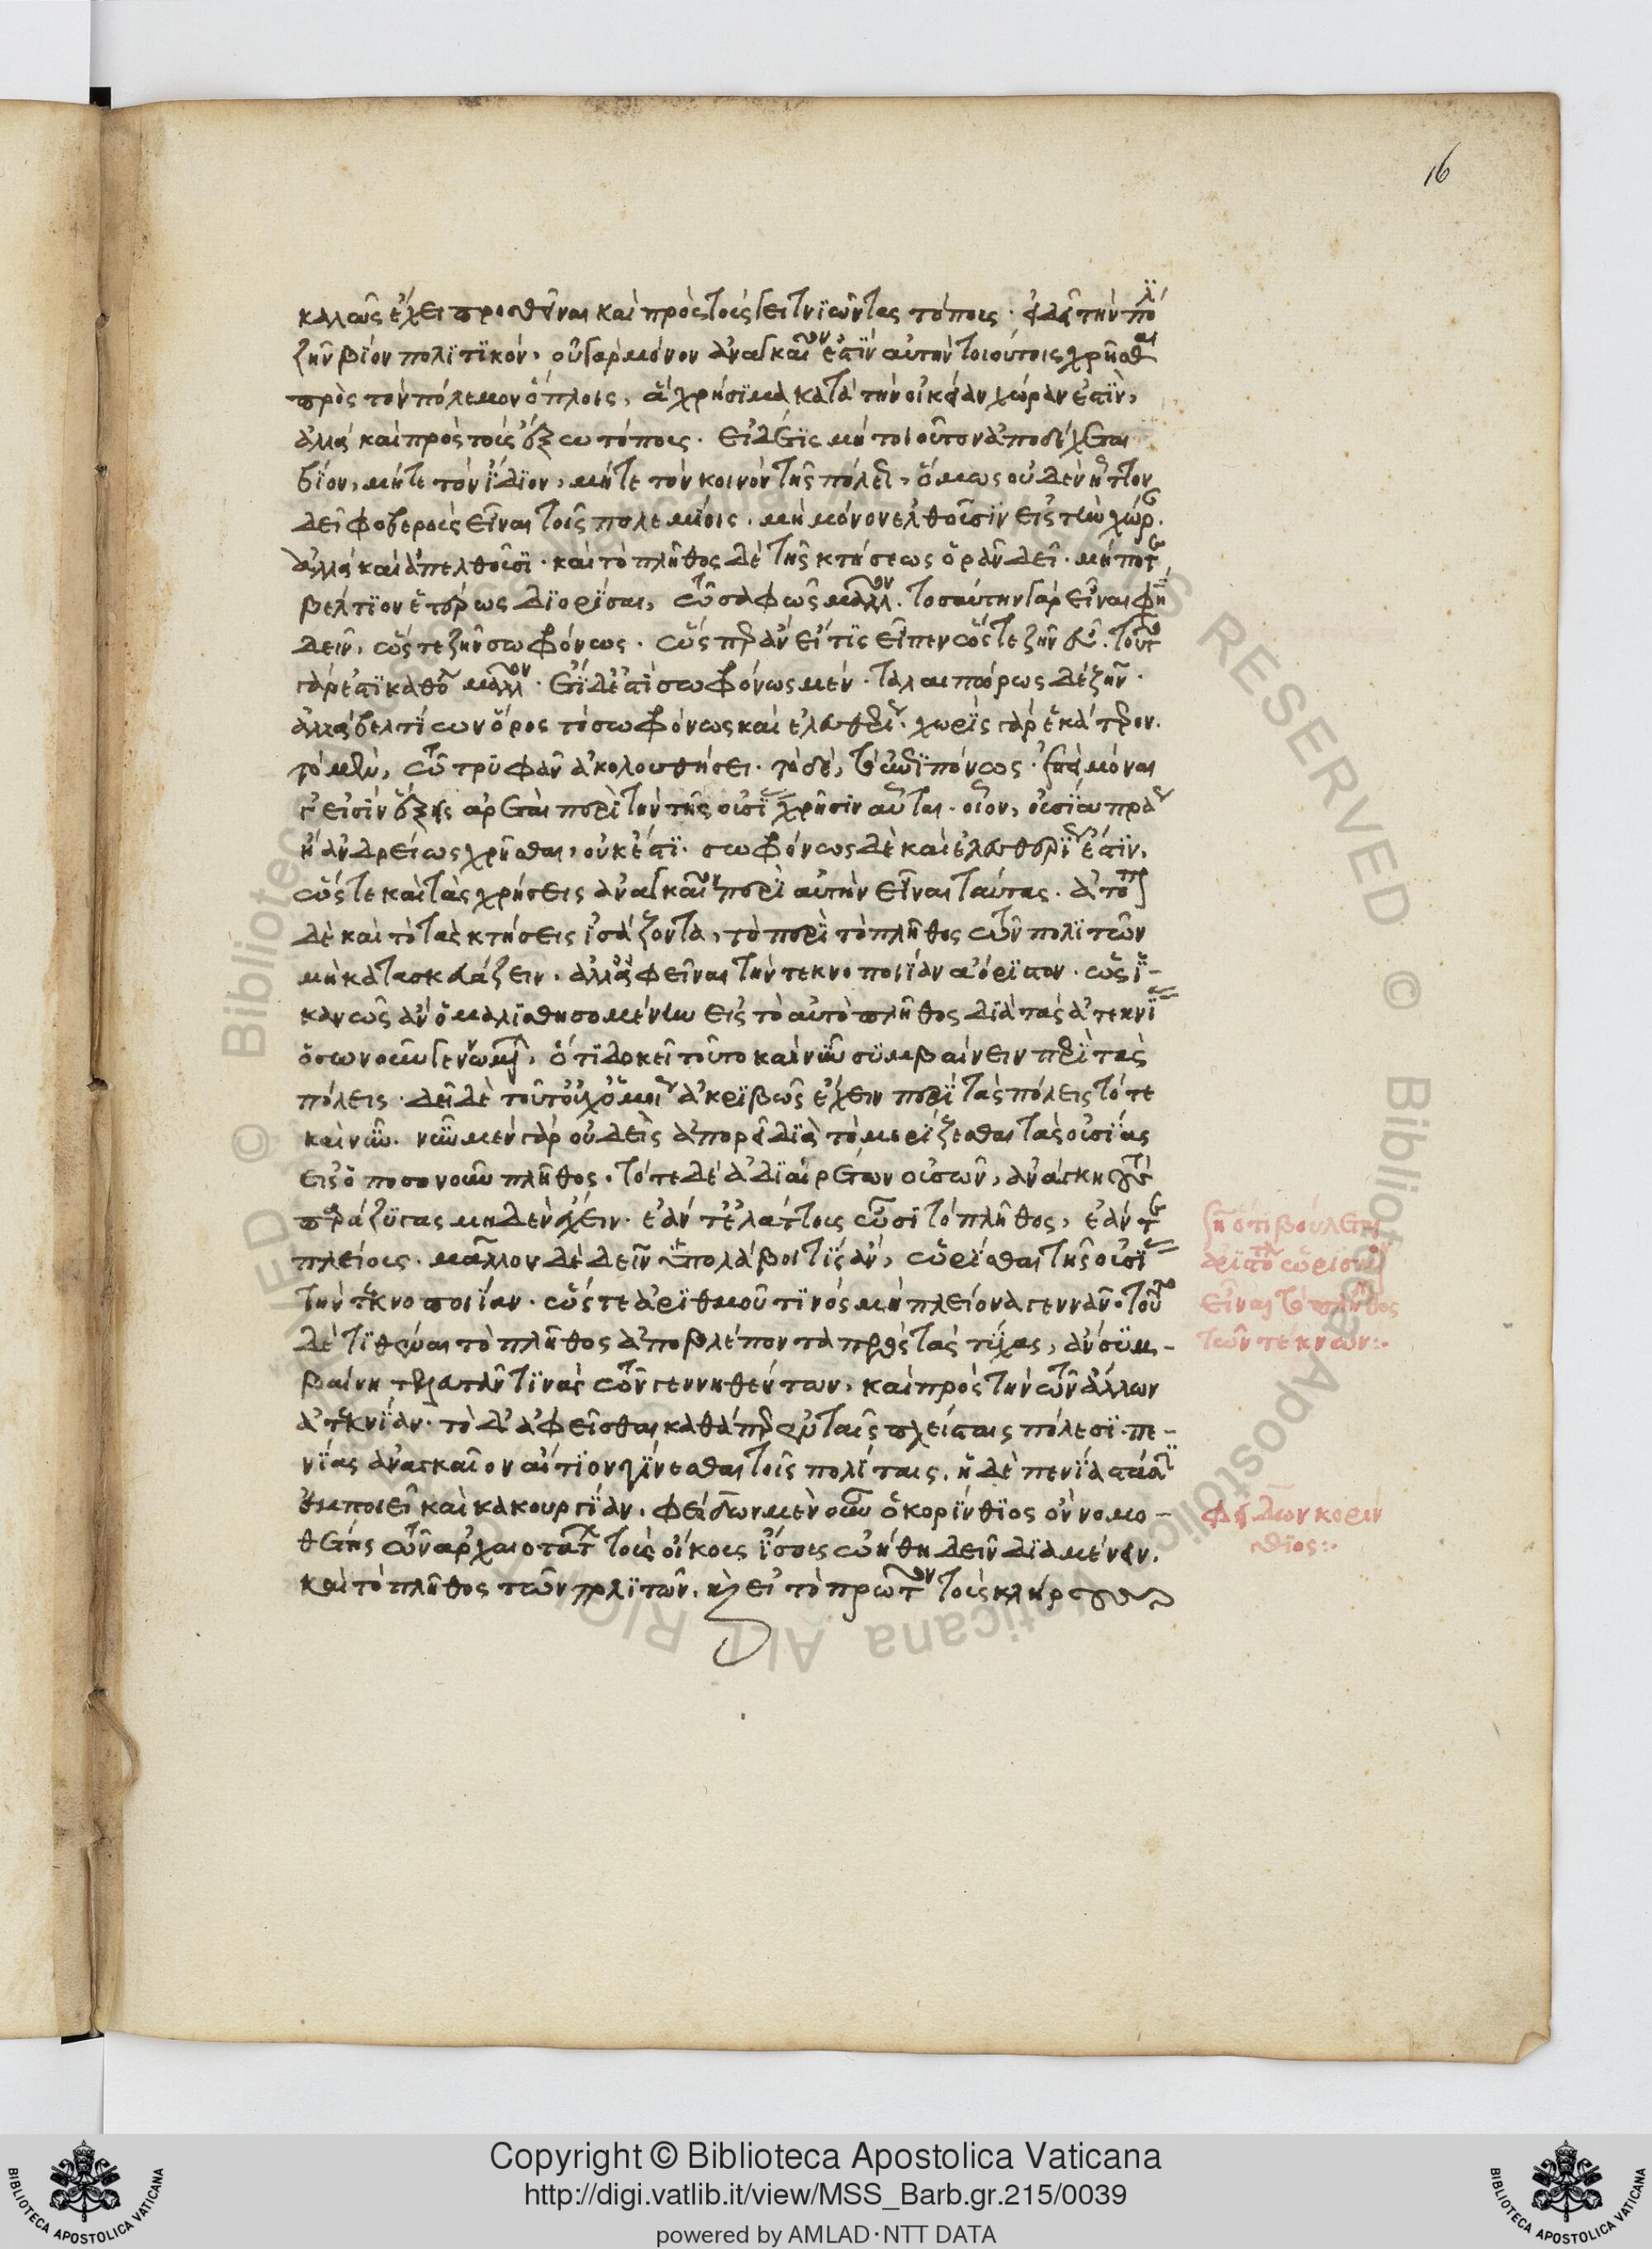 16
καλῶς ἔχει προσθεῖναι καὶ πρὸς τοὺς γειτνιῶντας τόπους· εἰ δεῖ τὴν πόλιν
ζῆν βίον πολιτικόν· οὐ γὰρ μόνον ἀναγκαῖον ἐστὶν αὐτὴν τοιούτοις χρῆσθαι
πρὸς τὸν πόλεμον ὅπλοις, ἃ χρήσιμα κατὰ τὴν οἰκείαν χώραν ἐστὶν,
ἀλλὰ καὶ πρὸς τοὺς ἔξω τόπους· εἰ δέ τις μὴ τοιοῦτον ἀποδέχεται
βίον, μήτε τὸν ἴδιον, μήτε τὸν κοινὸν τῆς πόλεως, ὅμως οὐδὲν ἧττον
δεῖ φοβεροὺς εἶναι τοῖς πολεμίοις· μὴ μόνον ἐλθοῦσιν εἰς τὴν χώραν·
ἀλλὰ καὶ ἀπελθοῦσι· καὶ τὸ πλῆθος δὲ τῆς κτήσεως ὁρᾶν δεῖ· μήποτε
βέλτιον ἑτέρως διορίσαι, τῷ σαφῶς μᾶλλον· τοσαύτην γὰρ εἶναι φησι
δεῖν, ὥστε ζῆν σωφρόνως· ὥσπερ ἂν εἴ τις εἶπεν ὥστε ζῆν εὖ· τοῦτο
γάρ ἐστι καθόλου μᾶλλον· ἔτι δ' ἔστι σωφρόνως μὲν· ταλαιπώρως δὲ ζῆν·
ἀλλὰ βελτίων ὅρος τὸ σωφρόνως καὶ ἐλευθερίως· χωρὶς γὰρ ἑκάτερον·
τὸ μὲν, τῷ τρυφᾶν ἀκολουθήσει· τὸ δὲ, τῷ ἐπιπόνως· ἐπεὶ μόναι
γ' εἰσὶν ἕξεις ἀρεταὶ περὶ τὴν τῆς οὐσίας χρῆσιν αὗται· οἷον, οὐσίαν πράως
ἢ ἀνδρείως χρῆσθαι, οὐκ ἔστι· σωφρόνως δὲ καὶ ἐλευθερίως ἐστὶν,
ὥστε καὶ τὰς χρήσεις ἀναγκαῖον περὶ αὐτὴν εἶναι ταύτας· ἄτοπον
δὲ καὶ τὸ τὰς κτήσεις ἰσάζοντα, τὸ περὶ τὸ πλῆθος τῶν πολιτῶν
μὴ κατασκευάζειν· ἀλλ' ἀφεῖναι τὴν τεκνοποιίαν ἀόριστον· ὡς ἱ-
κανῶς ἂν ὁμαλισθησομένην εἰς τὸ αὐτὸ πλῆθος διὰ τὰς ἀτεκνίας
ὁσωνοῦν γεννωμένων, ὅτι δοκεῖ τοῦτο καὶ νῦν συμβαίνειν περὶ τὰς
πόλεις· δεῖ δὲ τοῦτ' οὐχ ὁμοίως ἀκριβῶς ἔχειν περὶ τὰς πόλεις τότε
καὶ νῦν· νῦν μὲν γὰρ οὐδεὶς ἀπορεῖ διὰ τὸ μερίζεσθαι τὰς οὐσίας
εἰς ὁποσονοῦν πλῆθος· τότε δὲ ἀδιαιρέτων οὐσῶν, ἀνάγκη τοὺς
παράζυγας μηδὲν ἔχειν· ἐάν τ' ἐλάττους ὦσι τὸ πλῆθος, ἐάν τε
πλείους· μᾶλλον δὲ δεῖν ὑπολάβοι τις ἂν, ὡρίσθαι τῆς οὐσίας
τὴν τεκνοποιίαν· ὥστε ἀριθμοῦ τινὸς μὴ πλείονα γεννᾶν· τοῦτο
δὲ τιθέναι τὸ πλῆθος ἀποβλέποντα πρὸς τὰς τύχας, ἂν συμ-
βαίνη τελευτᾶν τινὰς τῶν γεννηθέντων, καὶ πρὸς τὴν τῶν ἄλλων
ἀτεκνίαν· τὸ δ' ἀφεῖσθαι καθάπερ ἐν ταῖς πλείσταις πόλεσι· πε-
νίας ἀναγκαῖον αἴτιον γίνεσθαι τοῖς πολίταις· ἡ δὲ πενία στάσιν
ἐμποιεῖ καὶ κακουργίαν· φείδων μὲν οὖν ὁ κορίνθιος ὢν νομο-
θέτης τῶν ἀρχαιοτάτων τοὺς οἴκους ἴσους ᾠήθη δεῖν διαμένειν·
καὶ τὸ πλῆθος τῶν πολιτῶν· καὶ εἰ τὸ πρῶτον τοὺς κλήρους
ση ὅτι βούλεται
ἀριστοτέλης ὡρισμένον
εἶναι τὸ πλῆθος
τῶν τέκνων:·
φείδων κοριν
θιος:·
Copyright © Biblioteca Apostolica Vaticana
http://digi.vatlib.it/view/MSS_Barb.gr.215/0039
powered by AMLAD·NTT DATA